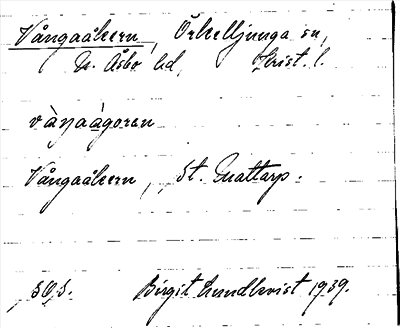 Vångaåkern, Örkelljunga sn,
N. Åsbo hd, Krist. l.
vàŋaàgoren
Vångaåkern, St. Gnattarp.
SOS. Birgit Lundkvist 1939.